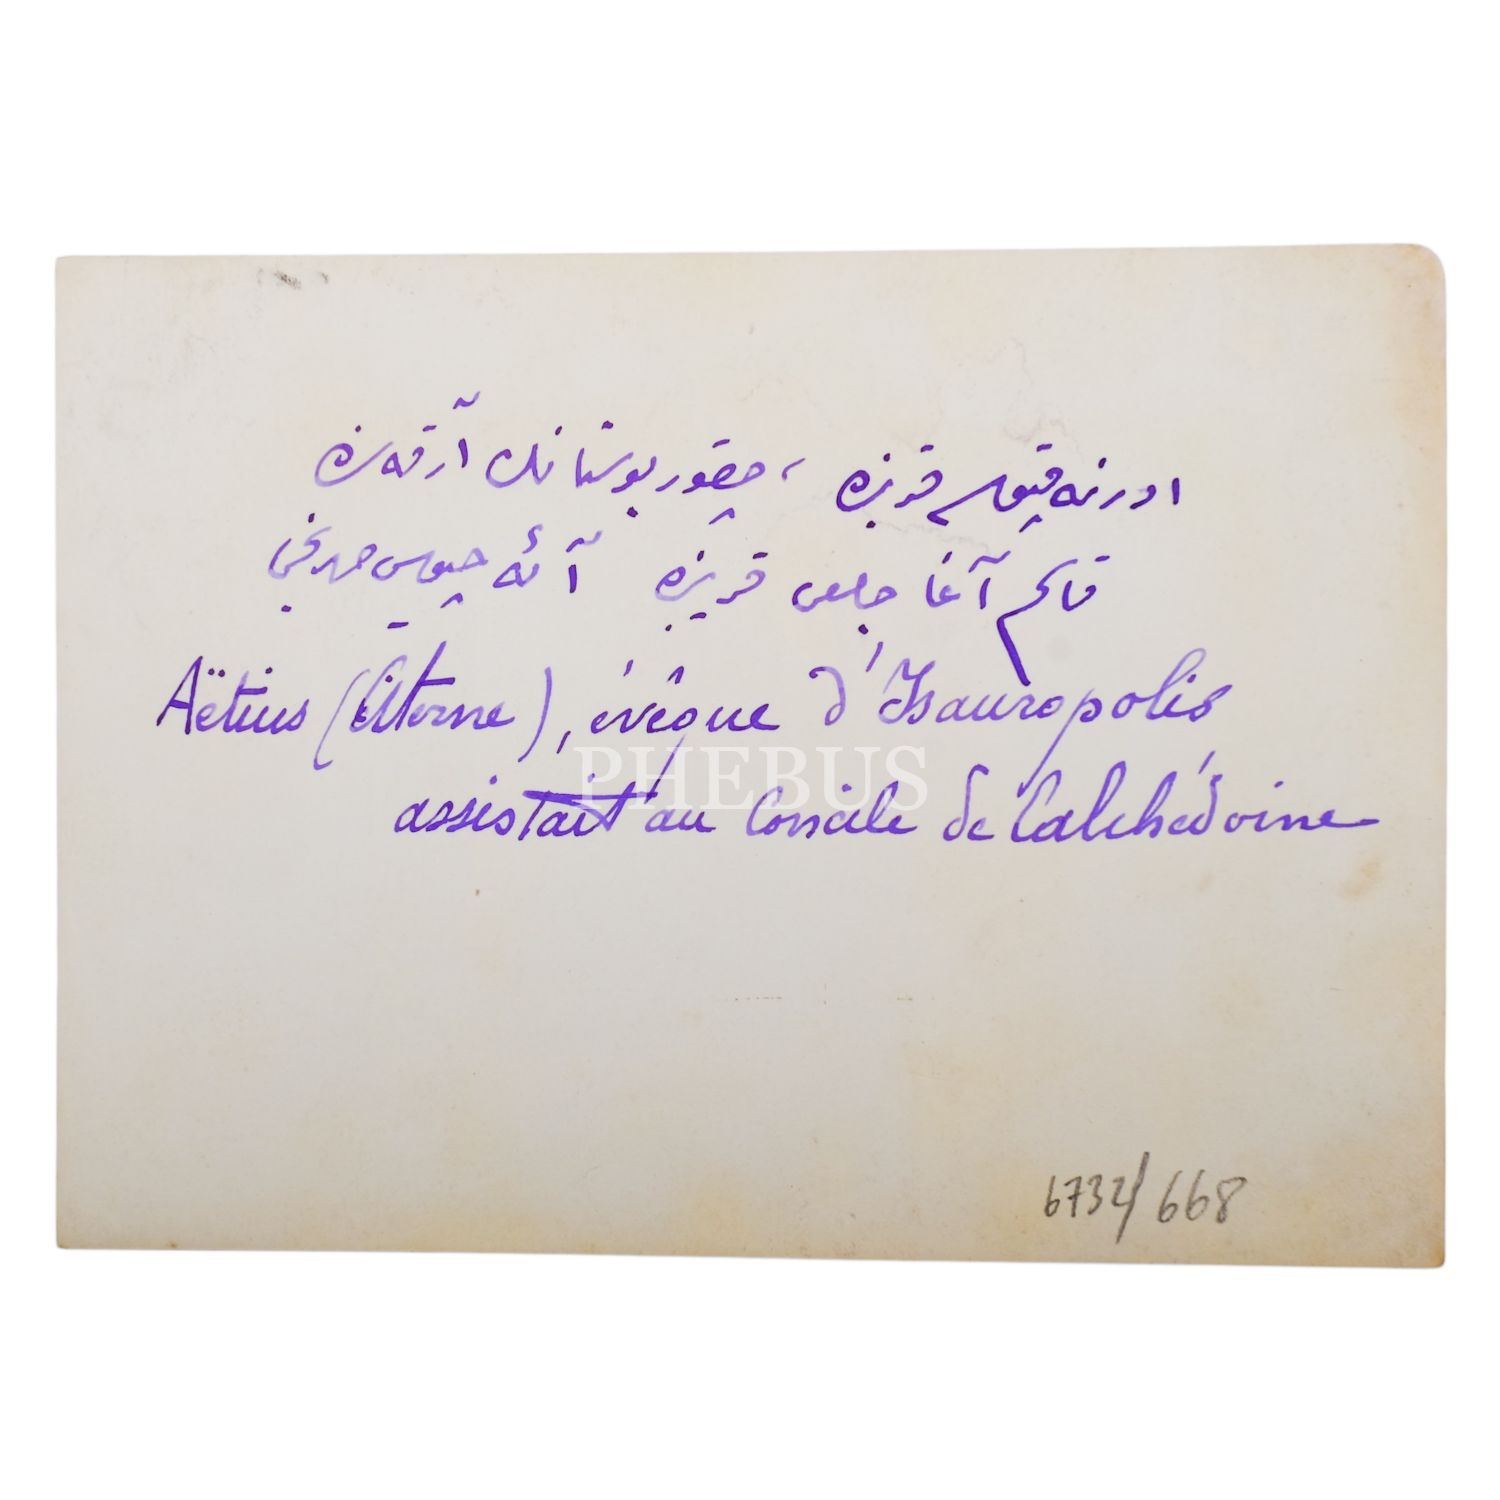 ادرنه قپوسی قربنده ، چقور بوستانك آرقه سنده
قاسم آغا جامعی قربنده آئه چیوس صهرنجی
Aëtius (Aterne), évêque d'Isauropolis
assistait au Concile de Calchédoine
PHEBUS
6732/668